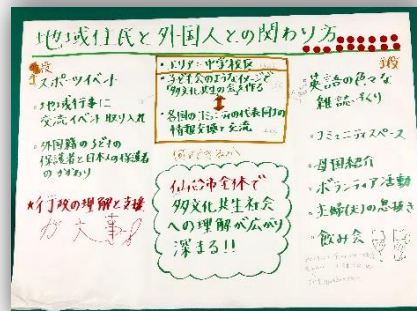 地域住民と外国人との関わり方
スポーツイベント
・地域行事に
交流イベント取り入れ
・外国籍の子どもの
保護者と日本人の保護者
のかかわり
★行政の理解と支援
が大事!
・エリア:中学校区
・子ども会のようなイメージで
"多文化共生の会"を作る
・各国のコミュニティの代表同士の
情報交換と交流
仙台市全体で
多文化共生社会
への理解が広がり
深まる!!
英語の色々な
雑誌づくり
コミュニティスペース
・母国紹介
・ボランティア活動
・主婦(夫)の息抜き
・飲み会